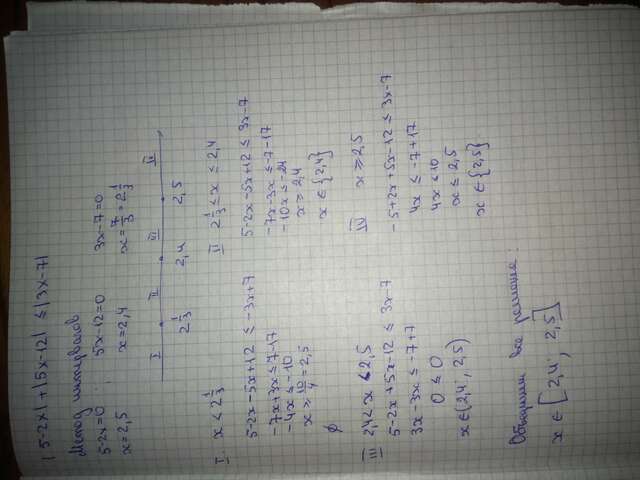 |5-2x| + |5x-12| ≤ |3x-7|
Метод интервалов
5-2x=0 ; 5x-12=0 3x-7=0
x=2,5 x=2,4 x=7/3=2 1/3
I II III IV
2 1/3 2,4 2,5
I. x < 2 1/3
5-2x-5x+12 ≤ -3x+7
-7x+3x ≤ 7-17
-4x ≤ -10
x ≥ 10/4 = 2,5
∅
II 2 1/3 ≤ x ≤ 2,4
5-2x-5x+12 ≤ 3x-7
-7x-3x ≤ -7-17
-10x ≤ -24
x ≥ 2,4
x ∈ {2,4}
III 2,4 < x < 2,5
5-2x+5x-12 ≤ 3x-7
3x-3x ≤ -7+7
0 ≤ 0
x ∈ (2,4; 2,5)
IV x ≥ 2,5
-5+2x+5x-12 ≤ 3x-7
4x ≤ -7+17
4x ≤ 10
x ≤ 2,5
x ∈ {2,5}
Объединим все решения:
x ∈ [2,4; 2,5]